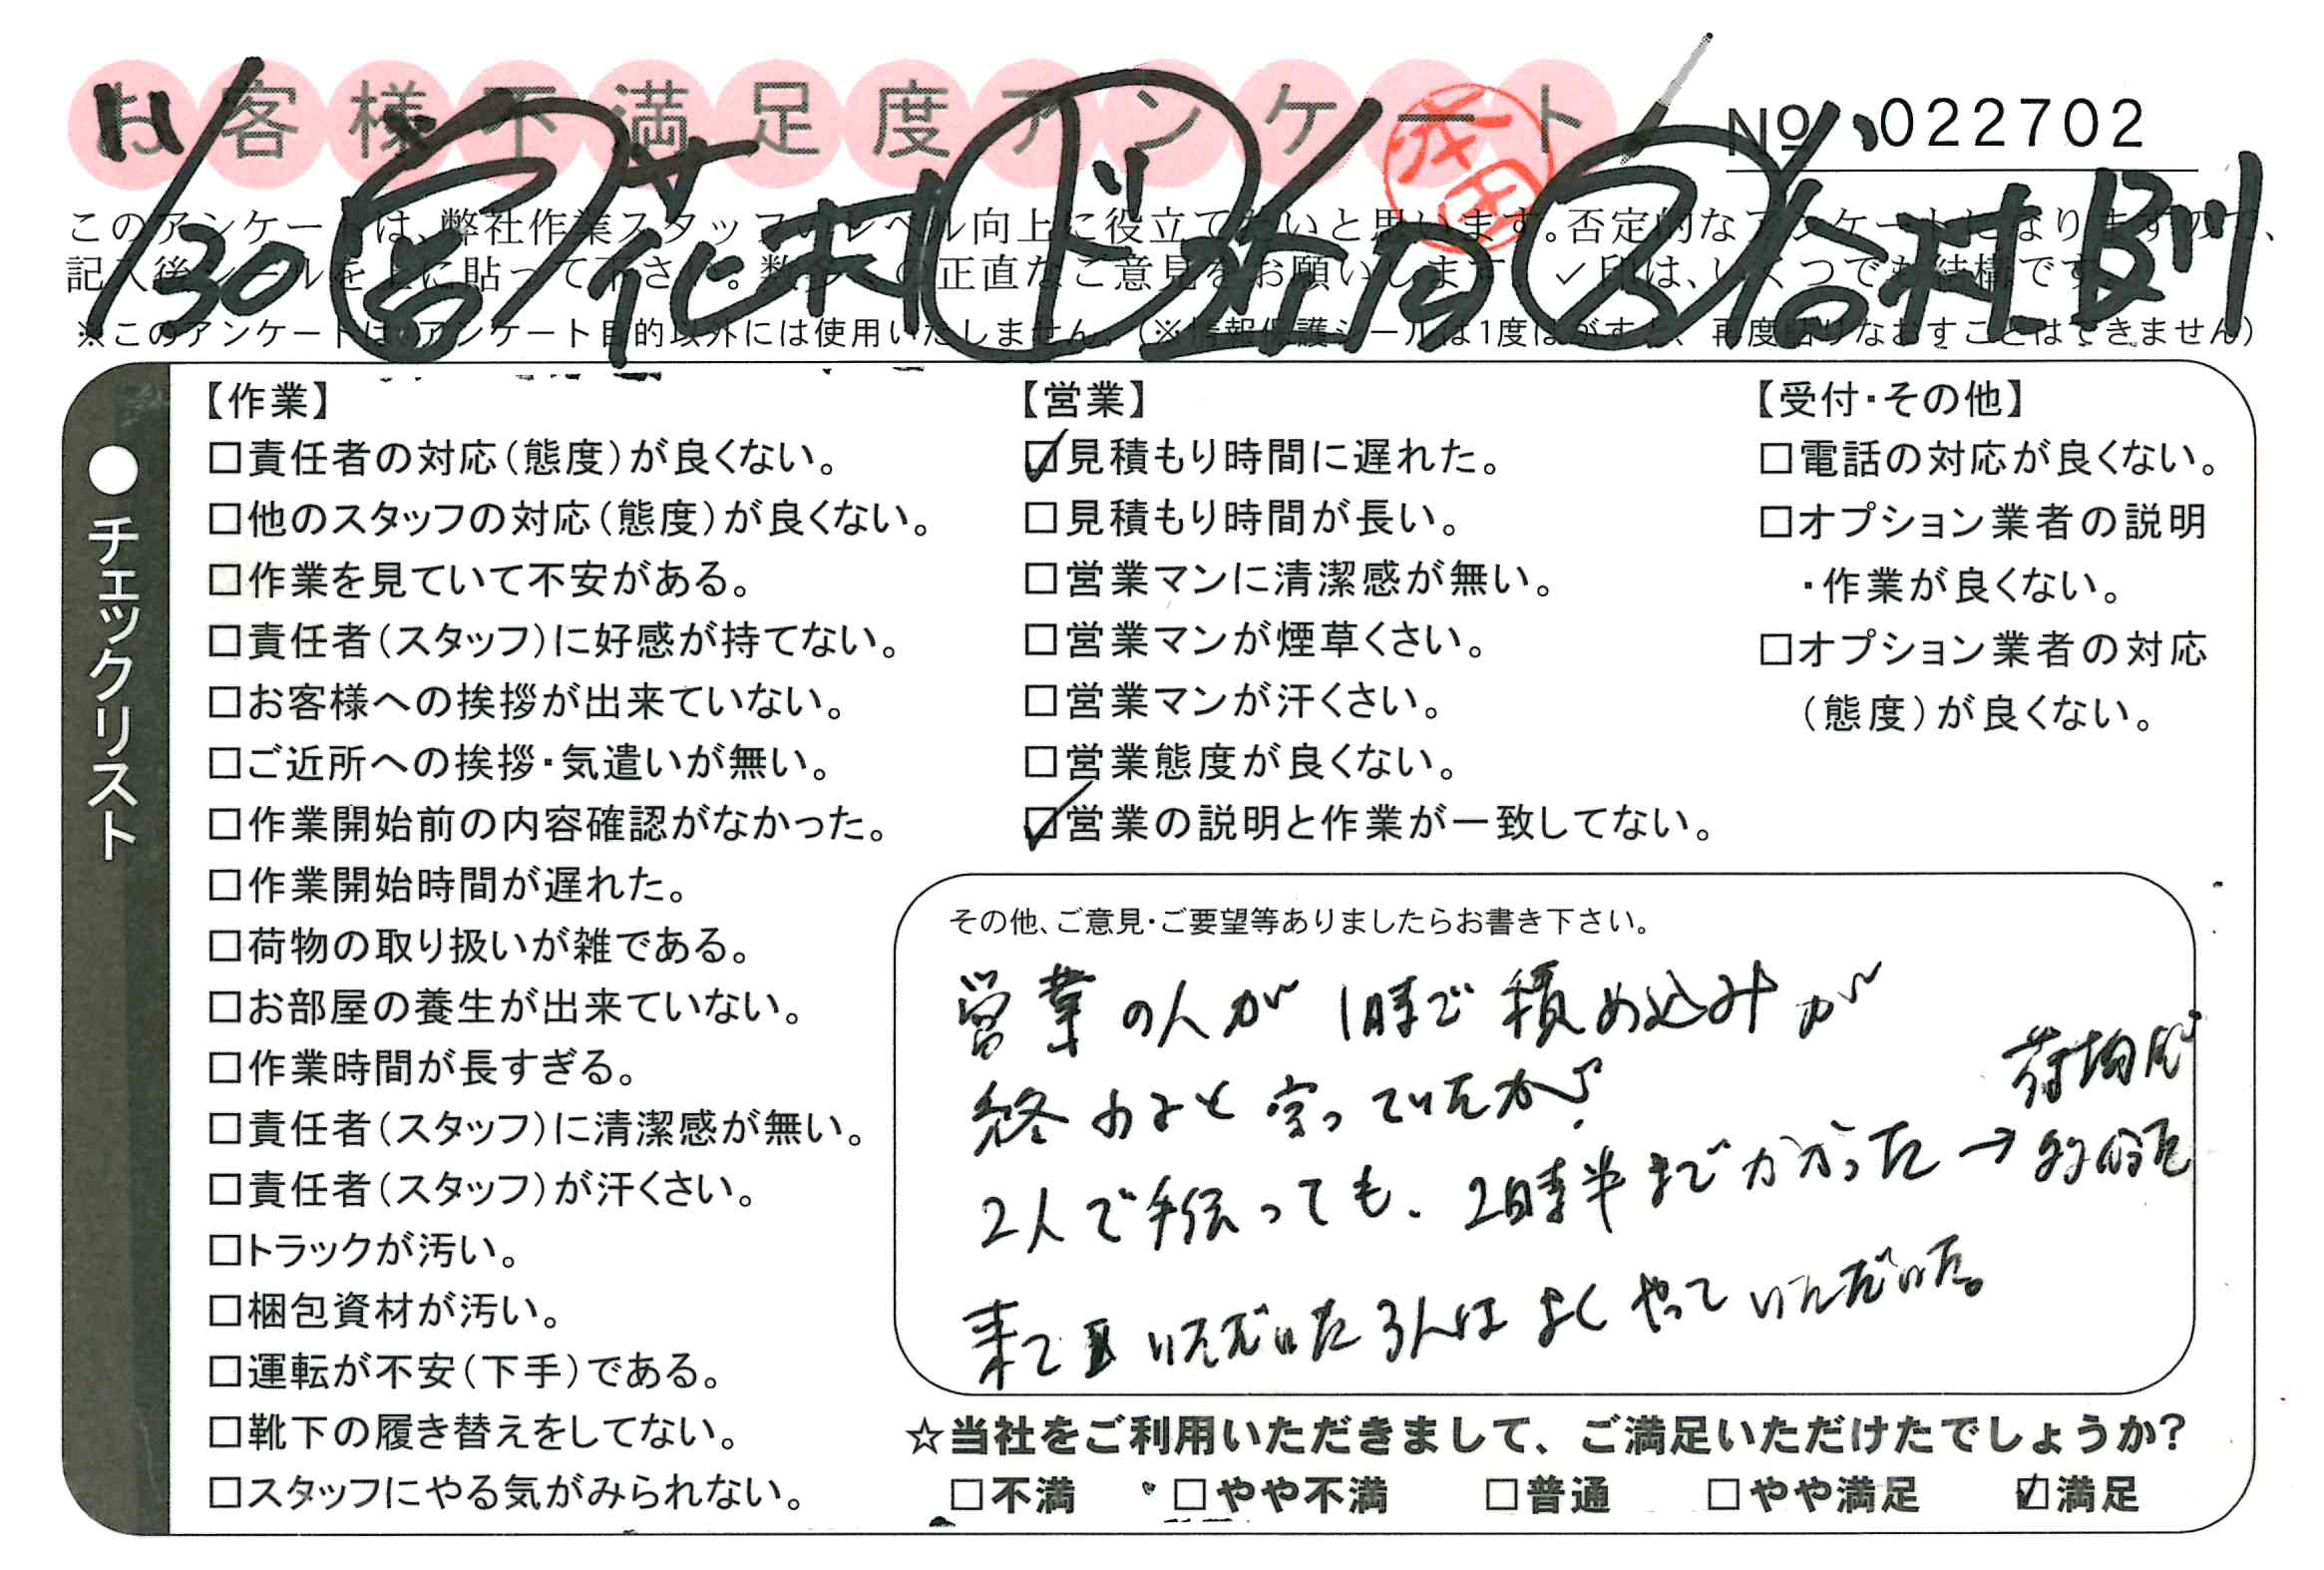 お客様不満足度アンケート
No 022702
11/30 営/花村 ド/松岡 ス/谷村
本田
このアンケートは、弊社作業スタッフのレベル向上に役立てたいと思います。否定的なアンケートになりますので、
記入後シールを上に貼って下さい。数多くの正直なご意見をお願いします。✓印は、いくつでも結構です。
※このアンケートは、アンケート目的以外には使用いたしません。（※情報保護シールは1度はがすと、再度貼りなおすことはできません）
●チェックリスト
【作業】
□責任者の対応（態度）が良くない。
□他のスタッフの対応（態度）が良くない。
□作業を見ていて不安がある。
□責任者（スタッフ）に好感が持てない。
□お客様への挨拶が出来ていない。
□ご近所への挨拶・気遣いが無い。
□作業開始前の内容確認がなかった。
□作業開始時間が遅れた。
□荷物の取り扱いが雑である。
□お部屋の養生が出来ていない。
□作業時間が長すぎる。
□責任者（スタッフ）に清潔感が無い。
□責任者（スタッフ）が汗くさい。
□トラックが汚い。
□梱包資材が汚い。
□運転が不安（下手）である。
□靴下の履き替えをしてない。
□スタッフにやる気がみられない。
【営業】
☑見積もり時間に遅れた。
□見積もり時間が長い。
□営業マンに清潔感が無い。
□営業マンが煙草くさい。
□営業マンが汗くさい。
□営業態度が良くない。
☑営業の説明と作業が一致してない。
【受付・その他】
□電話の対応が良くない。
□オプション業者の説明
・作業が良くない。
□オプション業者の対応
（態度）が良くない。
その他、ご意見・ご要望等ありましたらお書き下さい。
営業の人が1時で積め込みが
終わると言っていたが、
2人で手伝っても、2時半までかかった→
荷物が
来ていただいた3人はよくやっていただいた。
☆当社をご利用いただきまして、ご満足いただけたでしょうか?
□不満 □やや不満 □普通 □やや満足 ☑満足